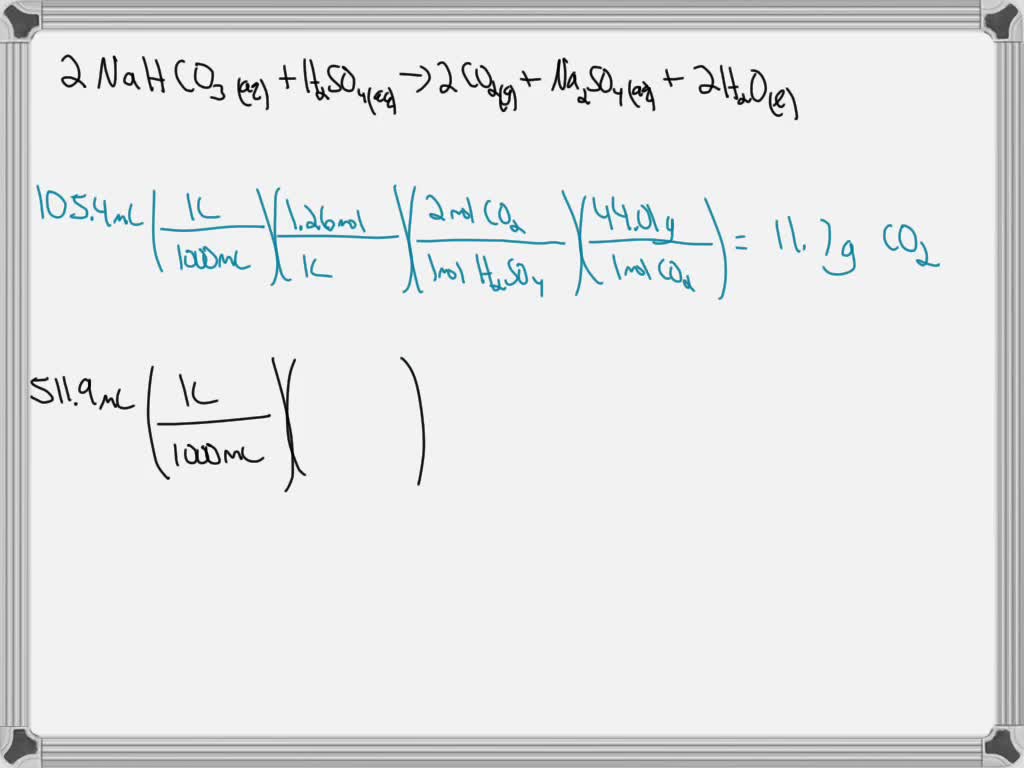 2 NaHCO₃(aq) + H₂SO₄(aq) → 2 CO₂(g) + Na₂SO₄(aq) + 2H₂O(l)
105.4 mL (1L / 1000 mL)(1.26 mol / 1L)(2 mol CO₂ / 1 mol H₂SO₄)(44.01 g / 1 mol CO₂) = 11.7g CO₂
511.9 mL (1L / 1000 mL)( )